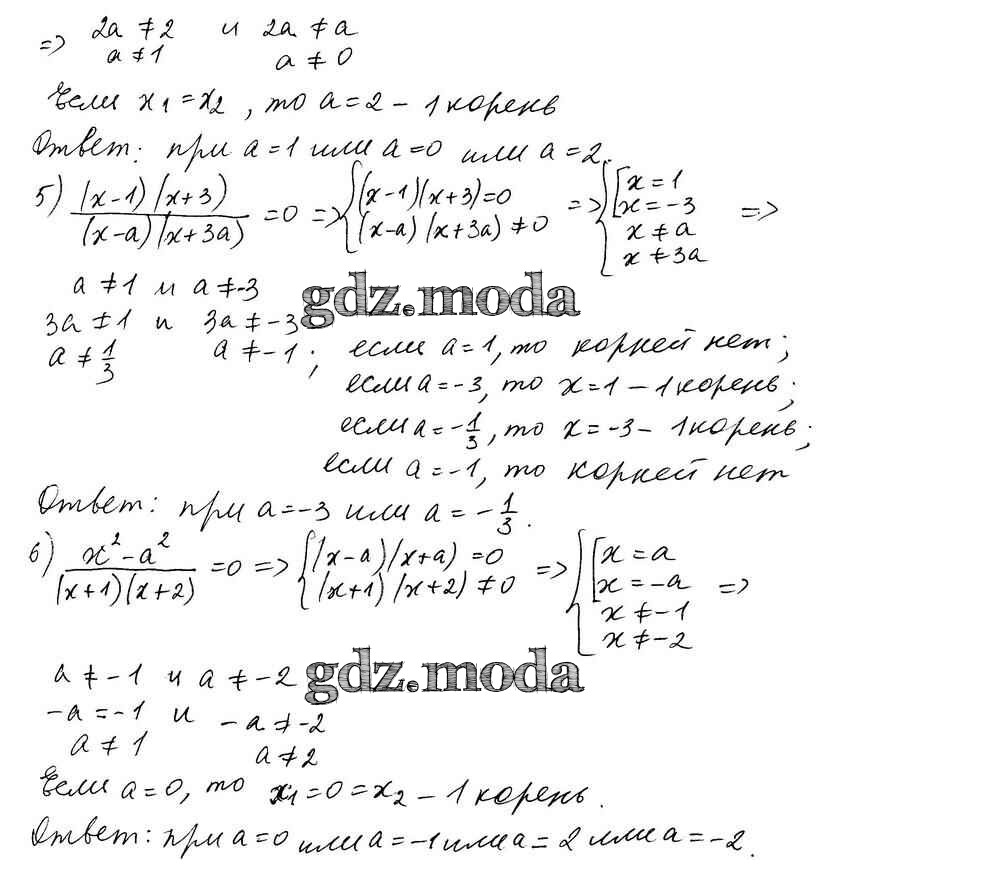 => 2a ≠ 2 и 2a ≠ a
a ≠ 1 a ≠ 0
Если x₁ = x₂, то a = 2 – 1 корень
Ответ: при a = 1 или a = 0 или a = 2.
5) (x-1)(x+3)/(x-a)(x+3a) = 0 => {(x-1)(x+3) = 0 (x-a)(x+3a) ≠ 0 => {[x = 1 x = -3 x ≠ a x ≠ 3a =>
a ≠ 1 и a ≠ -3
gdz.moda
3a ≠ 1 и 3a ≠ -3
a ≠ 1/3 a ≠ -1; если a = 1, то коркей нет;
если a = -3, то x = 1 – 1 корень;
если a = -1/3, то x = -3 – 1 корень;
если a = -1, то коркей нет
Ответ: при a = -3 или a = -1/3.
6) x² - a²/(x+1)(x+2) = 0 => {(x-a)(x+a) = 0 (x+1)(x+2) ≠ 0 => {[x = a x = -a x ≠ -1 x ≠ -2 =>
a ≠ -1 и a ≠ -2
gdz.moda
-a = -1 и -a ≠ -2
a ≠ 1 a ≠ 2
Если a = 0, то x₁ = 0 = x₂ – 1 корень.
Ответ: при a = 0 или a = -1 или a = 2 или a = -2.